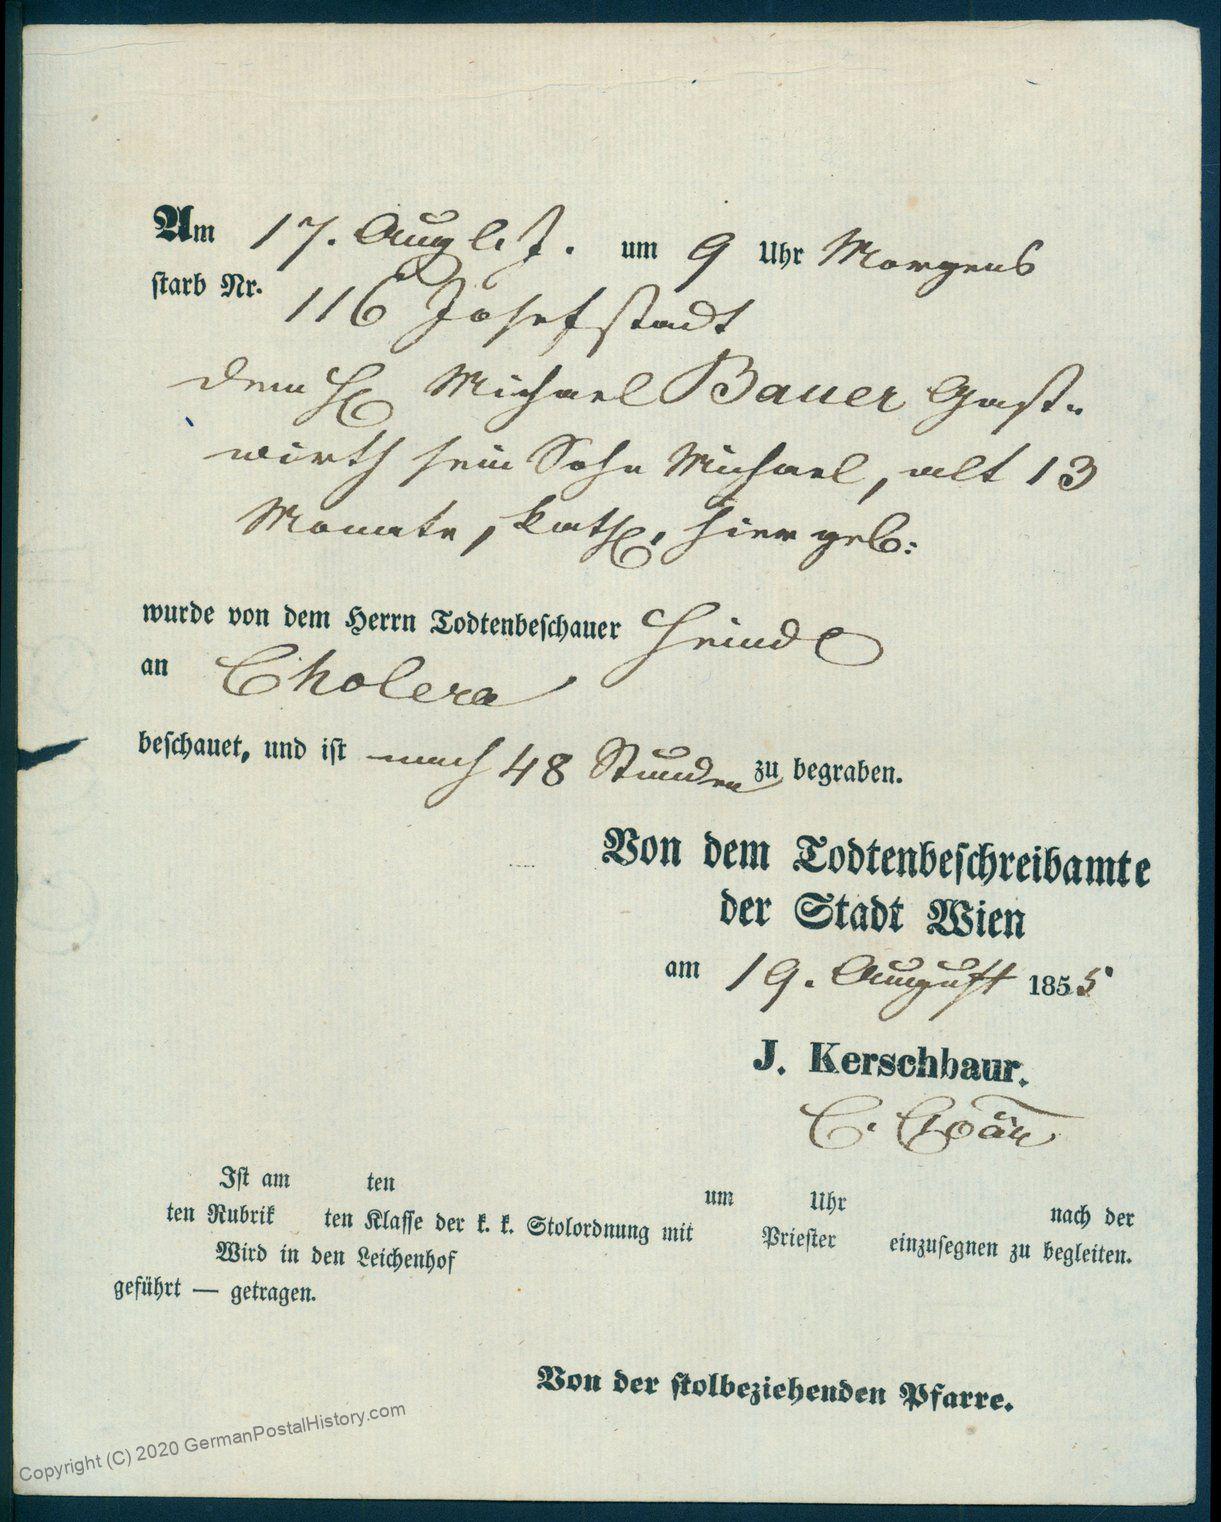 Am 17. Aug l. J. um 9 Uhr Morgens
starb Nr. 116 Josefstadt
dem H. Michael Bauer Gast-
wirth sein Sohn Michael, alt 13
Monate, kath, hier geb:
wurde von dem Herrn Todtenbeschauer Heindl
an Cholera
beschauet, und ist nach 48 Stunden zu begraben.
Von dem Todtenbeschreibamte
der Stadt Wien
am 19. August 1855
J. Kerschbaur.
C.
Ist am ten um Uhr nach der
ten Rubrik ten Klasse der k. k. Stolordnung mit Priester einzusegnen zu begleiten.
Wird in den Leichenhof
geführt — getragen.
Von der stolbeziehenden Pfarre.
Copyright (C) 2020 GermanPostalHistory.com